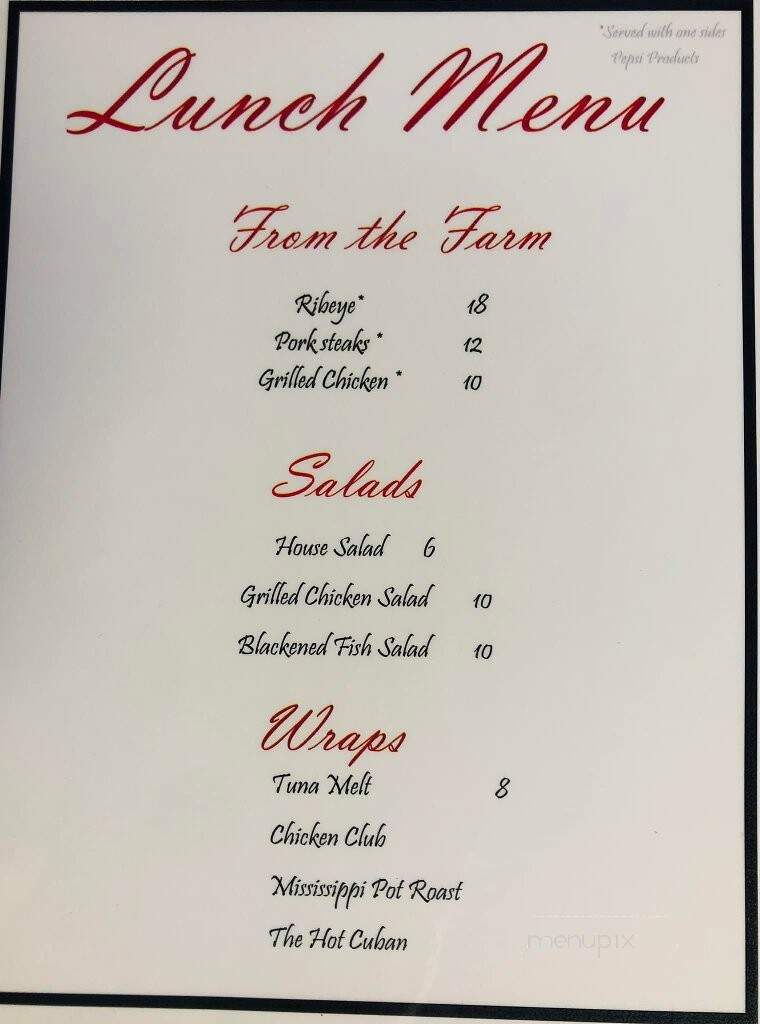 *Served with one sides
Pepsi Products
Lunch Menu
From the Farm
Ribeye* 18
Pork steaks * 12
Grilled Chicken * 10
Salads
House Salad 6
Grilled Chicken Salad 10
Blackened Fish Salad 10
Wraps
Tuna Melt 8
Chicken Club
Mississippi Pot Roast
The Hot Cuban
menupix